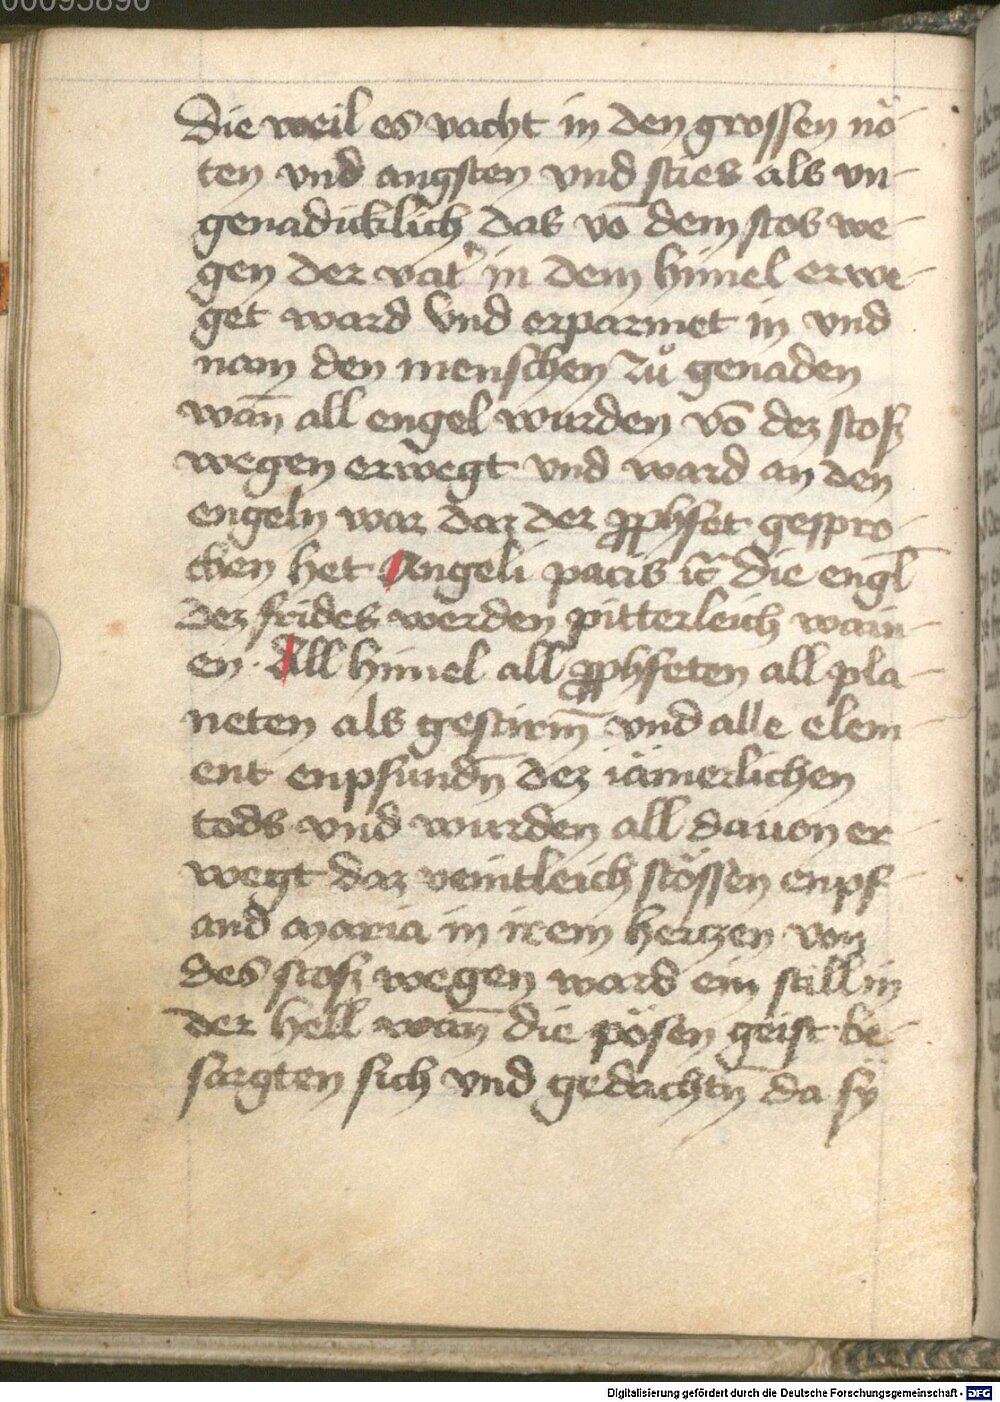 00095890
Die weil es vacht in den grossen nö-
ten vnd angsten vnd sties als vn-
genadicklich das vō dem stos we-
gen der vat' in dem himel erwe-
get ward Vnd erparmet in vnd
nam den menschen zů genaden
wan̄ all engel wurden vō dez stosz
wegen erwegt vnd ward an den
engeln war daz der p͛phet gespro-
chen het Angeli pacis ic̄ die engl̄
dez frides werden pitterleich wain-
en. All himel all p͛pheten all pla-
neten als gestirn̄ vnd alle elem
ent enpfundn̄ dez iämerlichen
tods vnd wurden all dauon er-
wegt daz veintleich stössen enpf-
and maria in irem hertzen von
des stosz wegen ward ein still in
der hell wan̄ die pösen geist be-
sargten sich vnd gedachtn̄ da sÿ
Digitalisierung gefördert durch die Deutsche Forschungsgemeinschaft - DFG